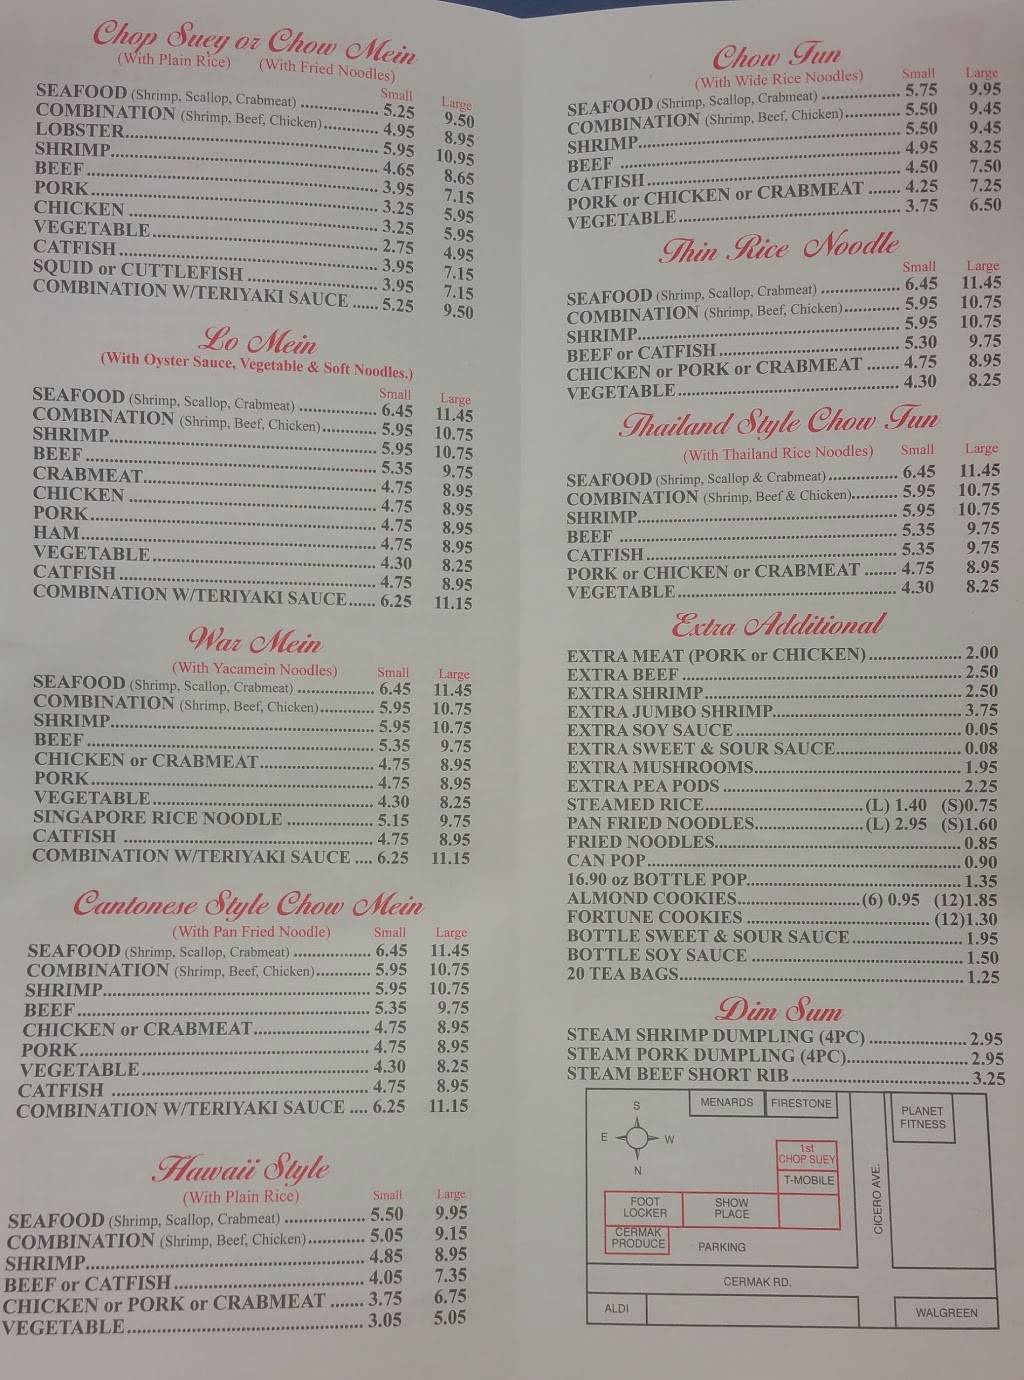 Chop Suey or Chow Mein
(With Plain Rice) (With Fried Noodles)
Small Large
SEAFOOD (Shrimp, Scallop, Crabmeat) 5.25 9.50
COMBINATION (Shrimp, Beef, Chicken) 4.95 8.95
LOBSTER 5.95 10.95
SHRIMP 4.65 8.65
BEEF 3.95 7.15
PORK 3.25 5.95
CHICKEN 3.25 5.95
VEGETABLE 2.75 4.95
CATFISH 3.95 7.15
SQUID or CUTTLEFISH 3.95 7.15
COMBINATION W/TERIYAKI SAUCE 5.25 9.50
Lo Mein
(With Oyster Sauce, Vegetable & Soft Noodles.)
Small Large
SEAFOOD (Shrimp, Scallop, Crabmeat) 6.45 11.45
COMBINATION (Shrimp, Beef, Chicken) 5.95 10.75
SHRIMP 5.95 10.75
BEEF 5.35 9.75
CRABMEAT 4.75 8.95
CHICKEN 4.75 8.95
PORK 4.75 8.95
HAM 4.75 8.95
VEGETABLE 4.30 8.25
CATFISH 4.75 8.95
COMBINATION W/TERIYAKI SAUCE 6.25 11.15
War Mein
(With Yacamein Noodles) Small Large
SEAFOOD (Shrimp, Scallop, Crabmeat) 6.45 11.45
COMBINATION (Shrimp, Beef, Chicken) 5.95 10.75
SHRIMP 5.95 10.75
BEEF 5.35 9.75
CHICKEN or CRABMEAT 4.75 8.95
PORK 4.75 8.95
VEGETABLE 4.30 8.25
SINGAPORE RICE NOODLE 5.15 9.75
CATFISH 4.75 8.95
COMBINATION W/TERIYAKI SAUCE 6.25 11.15
Cantonese Style Chow Mein
(With Pan Fried Noodle) Small Large
SEAFOOD (Shrimp, Scallop, Crabmeat) 6.45 11.45
COMBINATION (Shrimp, Beef, Chicken) 5.95 10.75
SHRIMP 5.95 10.75
BEEF 5.35 9.75
CHICKEN or CRABMEAT 4.75 8.95
PORK 4.75 8.95
VEGETABLE 4.30 8.25
CATFISH 4.75 8.95
COMBINATION W/TERIYAKI SAUCE 6.25 11.15
Hawaii Style
(With Plain Rice) Small Large
SEAFOOD (Shrimp, Scallop, Crabmeat) 5.50 9.95
COMBINATION (Shrimp, Beef, Chicken) 5.05 9.15
SHRIMP 4.85 8.95
BEEF or CATFISH 4.05 7.35
CHICKEN or PORK or CRABMEAT 3.75 6.75
VEGETABLE 3.05 5.05
Chow Fun
(With Wide Rice Noodles) Small Large
SEAFOOD (Shrimp, Scallop, Crabmeat) 5.75 9.95
COMBINATION (Shrimp, Beef, Chicken) 5.50 9.45
SHRIMP 5.50 9.45
BEEF 4.95 8.25
CATFISH 4.50 7.50
PORK or CHICKEN or CRABMEAT 4.25 7.25
VEGETABLE 3.75 6.50
Thin Rice Noodle
Small Large
SEAFOOD (Shrimp, Scallop, Crabmeat) 6.45 11.45
COMBINATION (Shrimp, Beef, Chicken) 5.95 10.75
SHRIMP 5.95 10.75
BEEF or CATFISH 5.30 9.75
CHICKEN or PORK or CRABMEAT 4.75 8.95
VEGETABLE 4.30 8.25
Thailand Style Chow Fun
(With Thailand Rice Noodles) Small Large
SEAFOOD (Shrimp, Scallop & Crabmeat) 6.45 11.45
COMBINATION (Shrimp, Beef & Chicken) 5.95 10.75
SHRIMP 5.95 10.75
BEEF 5.35 9.75
CATFISH 5.35 9.75
PORK or CHICKEN or CRABMEAT 4.75 8.95
VEGETABLE 4.30 8.25
Extra Additional
EXTRA MEAT (PORK or CHICKEN) 2.00
EXTRA BEEF 2.50
EXTRA SHRIMP 2.50
EXTRA JUMBO SHRIMP 3.75
EXTRA SOY SAUCE 0.05
EXTRA SWEET & SOUR SAUCE 0.08
EXTRA MUSHROOMS 1.95
EXTRA PEA PODS 2.25
STEAMED RICE (L) 1.40 (S)0.75
PAN FRIED NOODLES (L) 2.95 (S)1.60
FRIED NOODLES 0.85
CAN POP 0.90
16.90 oz BOTTLE POP 1.35
ALMOND COOKIES (6) 0.95 (12)1.85
FORTUNE COOKIES (12)1.30
BOTTLE SWEET & SOUR SAUCE 1.95
BOTTLE SOY SAUCE 1.50
20 TEA BAGS 1.25
Dim Sum
STEAM SHRIMP DUMPLING (4PC) 2.95
STEAM PORK DUMPLING (4PC) 2.95
STEAM BEEF SHORT RIB 3.25
S
E W
N
MENARDS FIRESTONE
PLANET
FITNESS
1st
CHOP SUEY
T-MOBILE
FOOT
LOCKER
SHOW
PLACE
CERMAK
PRODUCE
PARKING
CICERO AVE.
CERMAK RD.
ALDI
WALGREEN